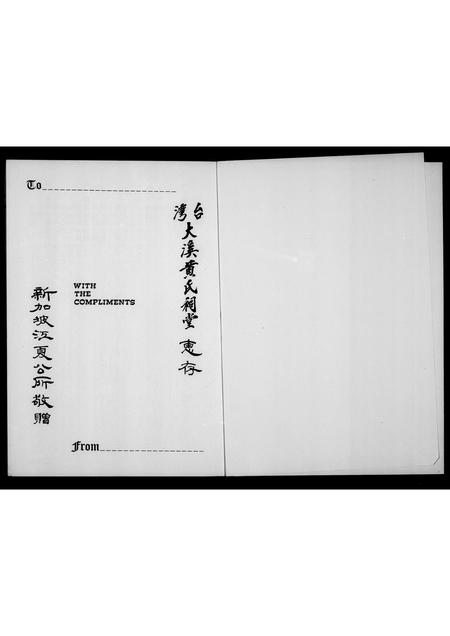 To
台灣
大溪黃氏祠堂 惠存
WITH
THE
COMPLIMENTS
新加坡江夏公所敬贈
From